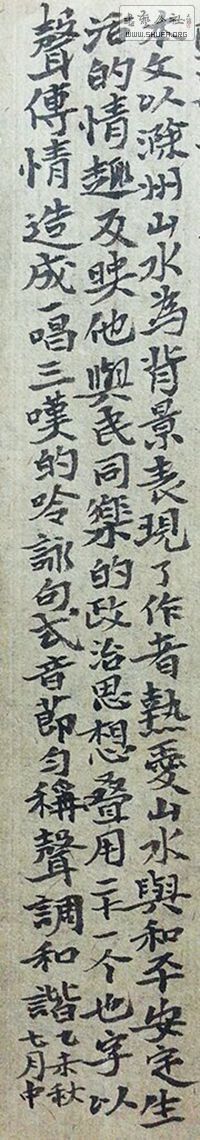 本文以滁州山水為背景表現了作者熱愛山水與和平安定生
活的情趣反映他與民同樂的政治思想疊用二十一个也字以
聲傳情造成一唱三嘆的吟詠句式音節勻稱聲調和諧
乙未秋
七月中
WWW.SHUFA.ORG